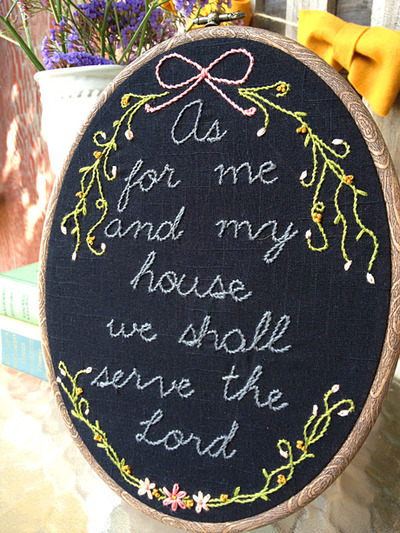 As
for me
and my
house
we shall
serve the
Lord